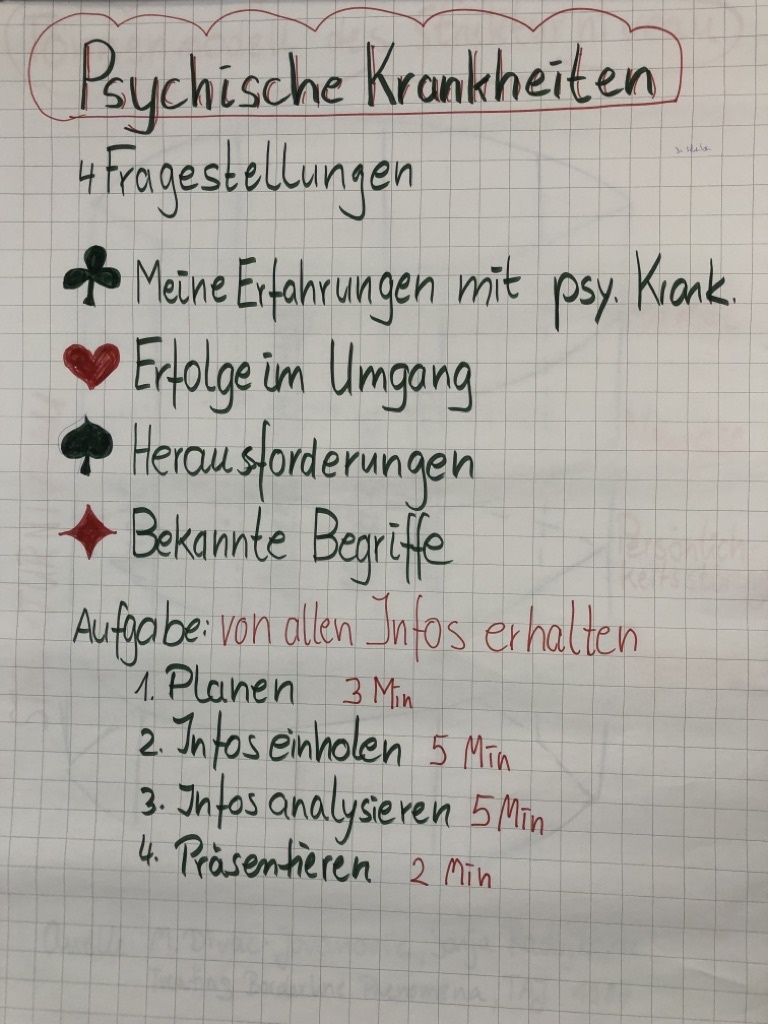 Psychische Krankheiten
4 Fragestellungen
♣ Meine Erfahrungen mit psy. Krank.
♥ Erfolge im Umgang
♠ Herausforderungen
♦ Bekannte Begriffe
Aufgabe: von allen Infos erhalten
1. Planen 3 Min
2. Infos einholen 5 Min
3. Infos analysieren 5 Min
4. Präsentieren 2 Min